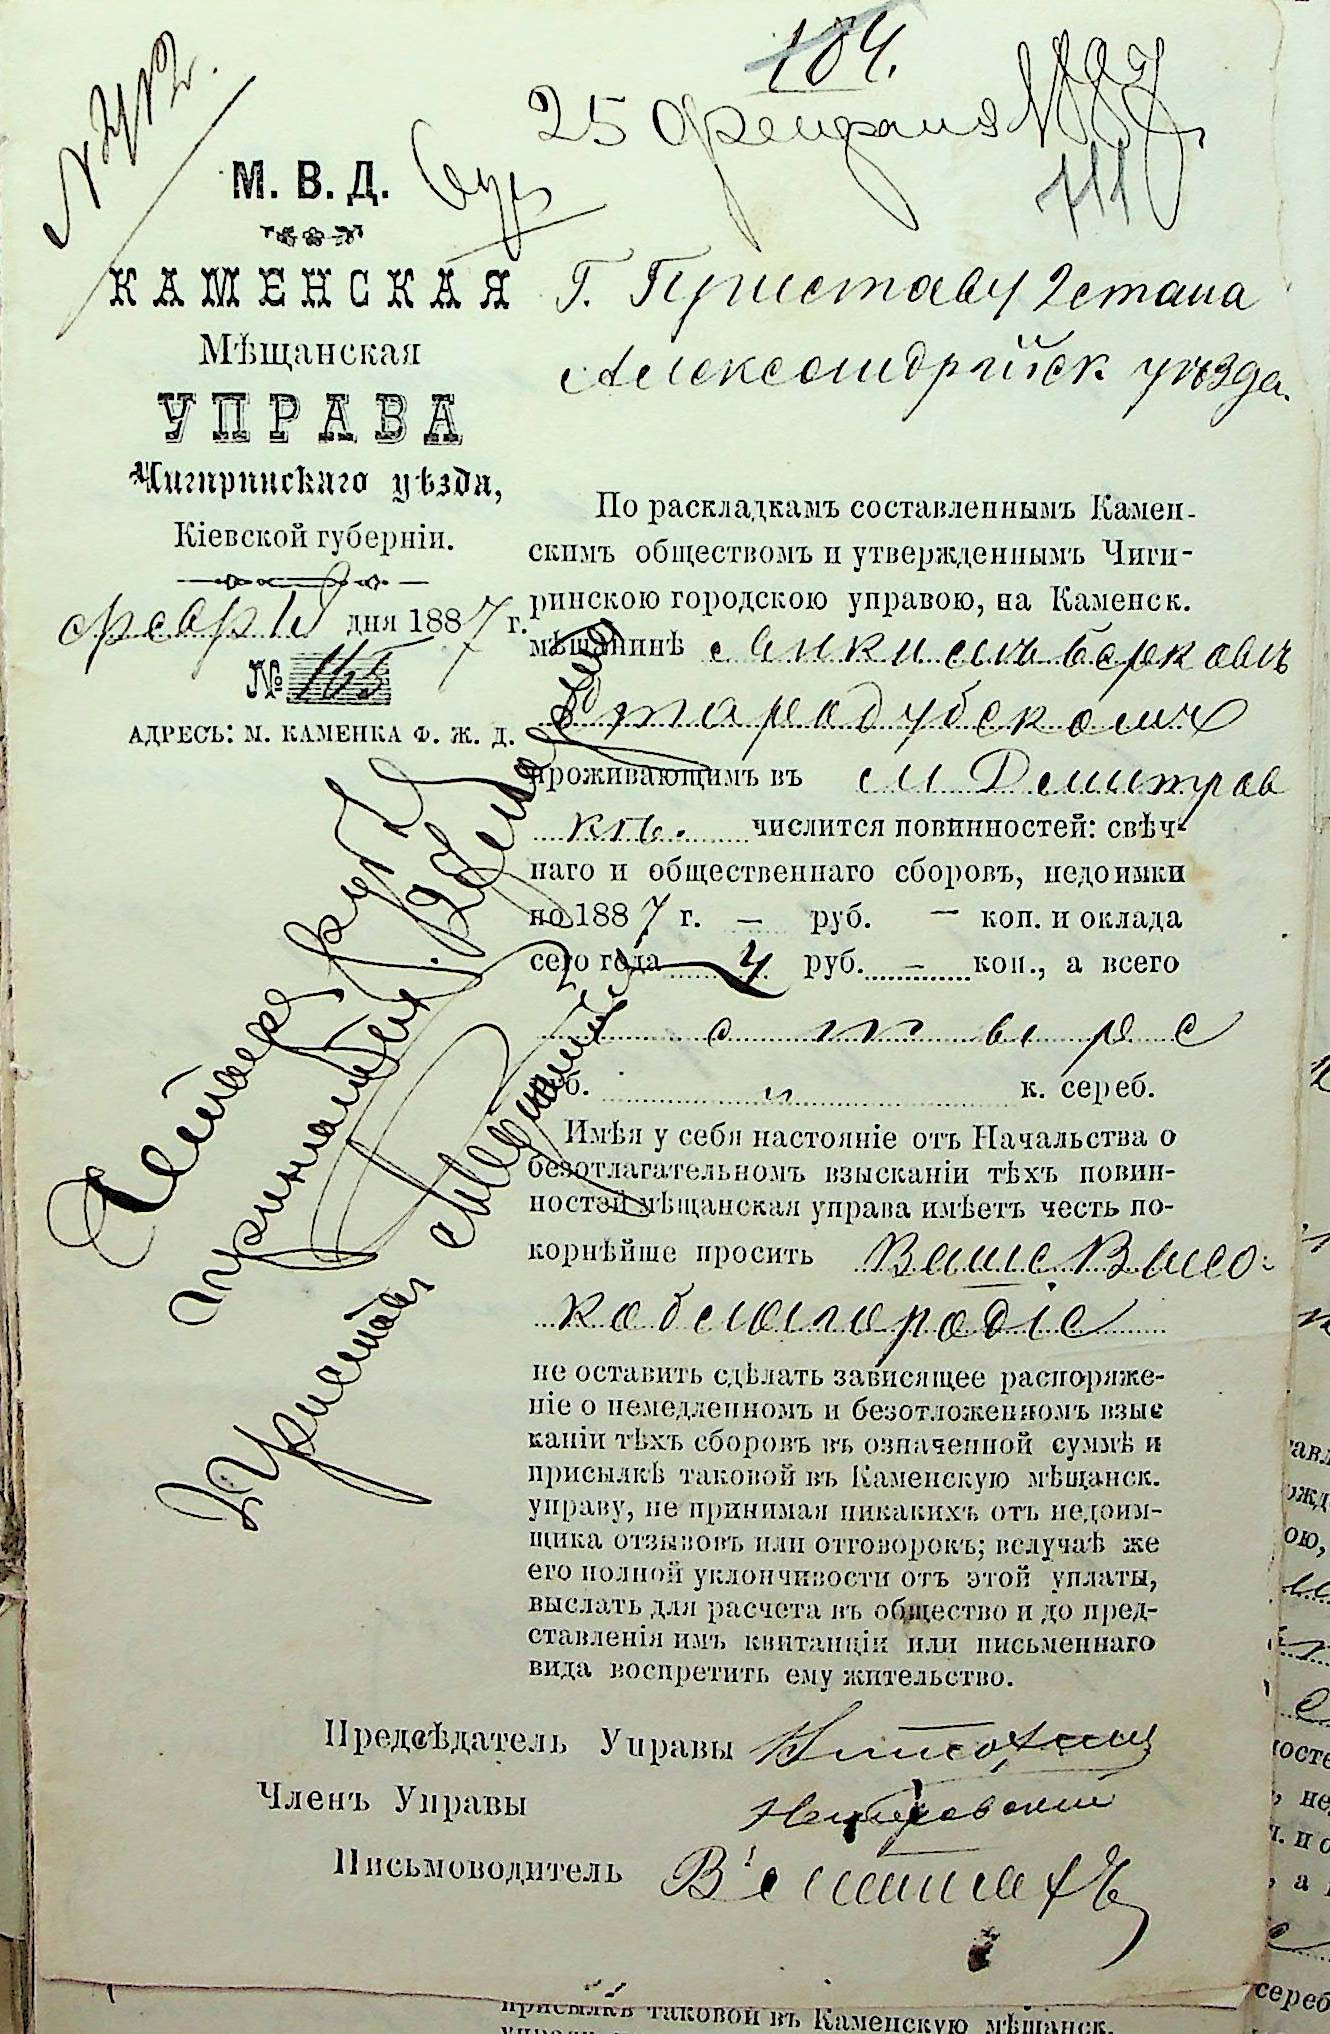 104.
25 Февраля 1887 г.
711
М. В. Д.
КАМЕНСКАЯ
Мѣщанская
УПРАВА
Чигиринскаго уѣзда,
Кіевской губерніи.
февр 18 дня 1887 г.
№ 165
АДРЕСЪ: М. КАМЕНКА Ф. Ж. Д.
Г. Приставу 2 стана
Александрійск уѣзда.
По раскладкамъ составленнымъ Камен-
скимъ обществомъ и утвержденнымъ Чиги-
ринскою городскою управою, на Каменск.
мѣщанинѣ Берковъ
Стародубскомъ
проживающимъ въ м Дмитров
кѣ. числится повинностей: свѣч-
наго и общественнаго сборовъ, недоимки
по 1887 г. — руб. — коп. и оклада
сего года 4 руб. — коп., а всего
четыре
руб. к. сереб.
Имѣя у себя настояніе отъ Начальства о
безотлагательномъ взысканіи тѣхъ повин-
ностей мѣщанская управа имѣетъ честь по-
корнѣйше просить Ваше Высо-
коблагородіе
не оставить сдѣлать зависящее распоряже-
ніе о немедленномъ и безотложенномъ взыс
каніи тѣхъ сборовъ въ означенной суммѣ и
присылкѣ таковой въ Каменскую мѣщанск.
управу, не принимая никакихъ отъ недоим-
щика отзывовъ или отговорокъ; вслучаѣ же
его полной уклончивости отъ этой уплаты,
выслать для расчета въ общество и до пред-
ставленія имъ квитанціи или письменнаго
вида воспретить ему жительство.
Предсѣдатель Управы
Членъ Управы
Письмоводитель
Пристав
присылкѣ таковой въ Каменскую мѣщанск.